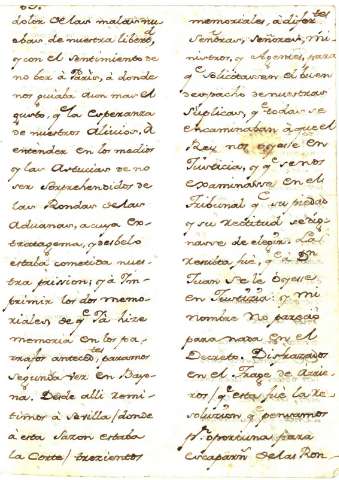 dolor de las malas nu
ebas de nuestra libertd
y con el sentimiento de
no ber à Paris, à donde
nos guiaba aun mas el
gusto, q la esperanza
de nuestros Alivios, A
entender en los medios
y las Astucias de no
ser sorprehendidos de
las Rondas de las
Aduanas, a cuya ex-
tratagema, y desbelo
estaba cometida nues-
tra prission; y à Im-
primir los dos memo-
riales, de q Ia hize
memoria en los pa-
rrafos anteced.tes passamos
segunda vez en Bayo-
na. Desde alli Remi-
timos à Sevilla/donde
à esta sazon estaba
la Corte/ trezientos
memoriales, à difer.tes
Señoras, Señores, Mi-
nistros, y Agentes, para
q solicitassen el buen
despacho de nuestras
suplicas, q todas se
encaminaban à que el
Rey nos oyesse en
Justicia, y q se nos
examinasse en el
Tribunal q su piedad
y su Rectitud se dig-
nasse de elegir. La
resulta fue, q à Dn
Juan se le oyesse
en Justicia: y mi
nombre no pareció
para nada en el
Decreto. Disfrazados
en el Trage de Arrie-
ros/q esta fue la Re-
soluzion, q pensamos
p.r oportuna para
escapar de las Ron-